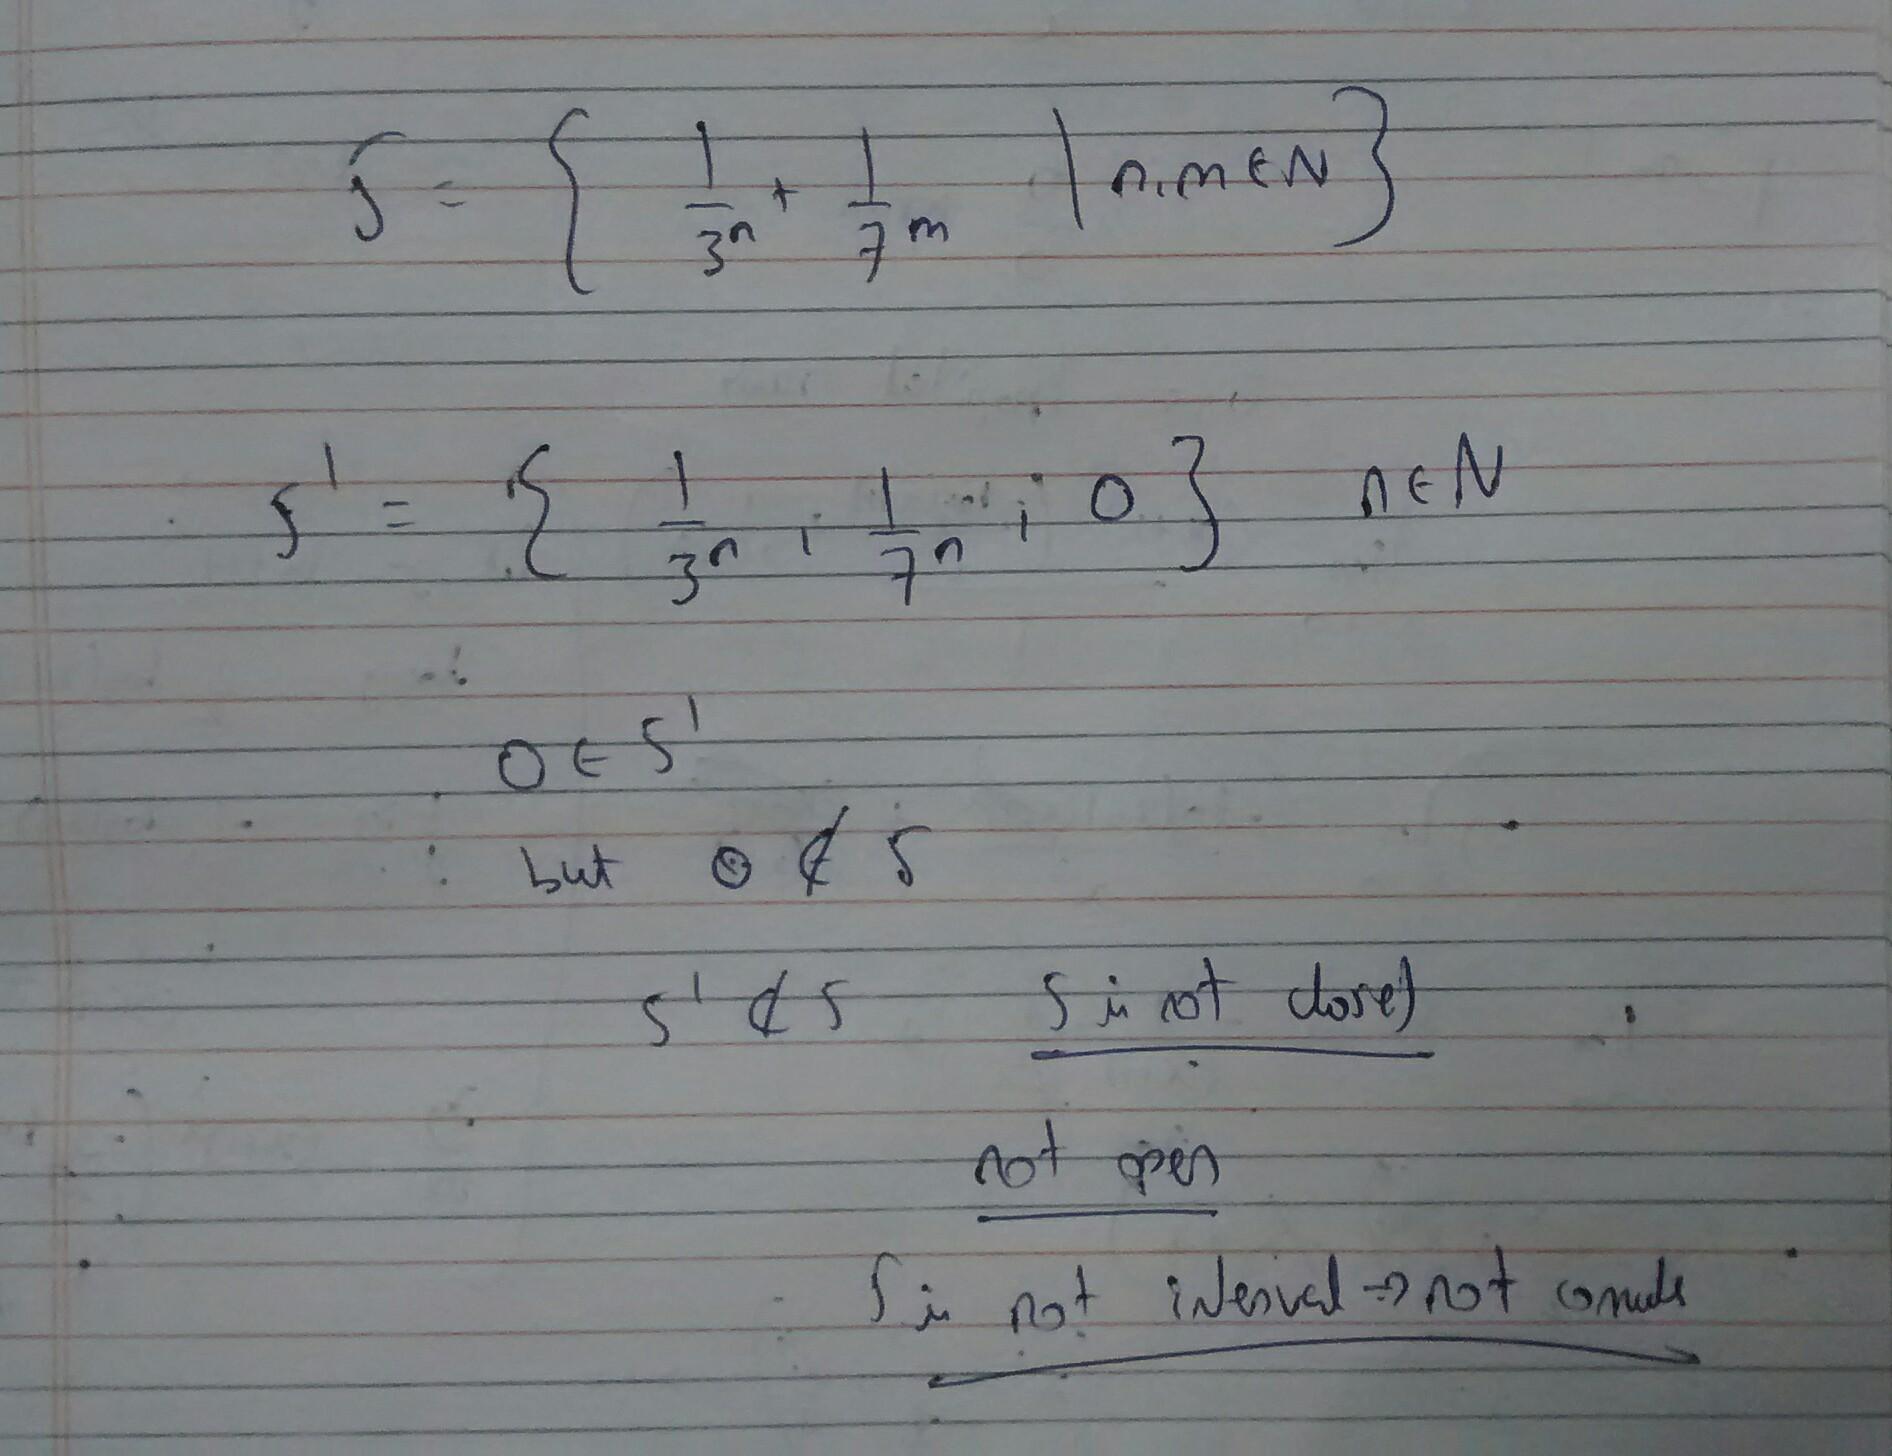 S = { 1/3ⁿ + 1/7ᵐ | n, m ∈ N }
S' = { 1/3ⁿ , 1/7ⁿ ; 0 } n ∈ N
0 ∈ S'
but 0 ∉ S
S' ⊄ S S is not closed
not open
S is not interval ⇒ not